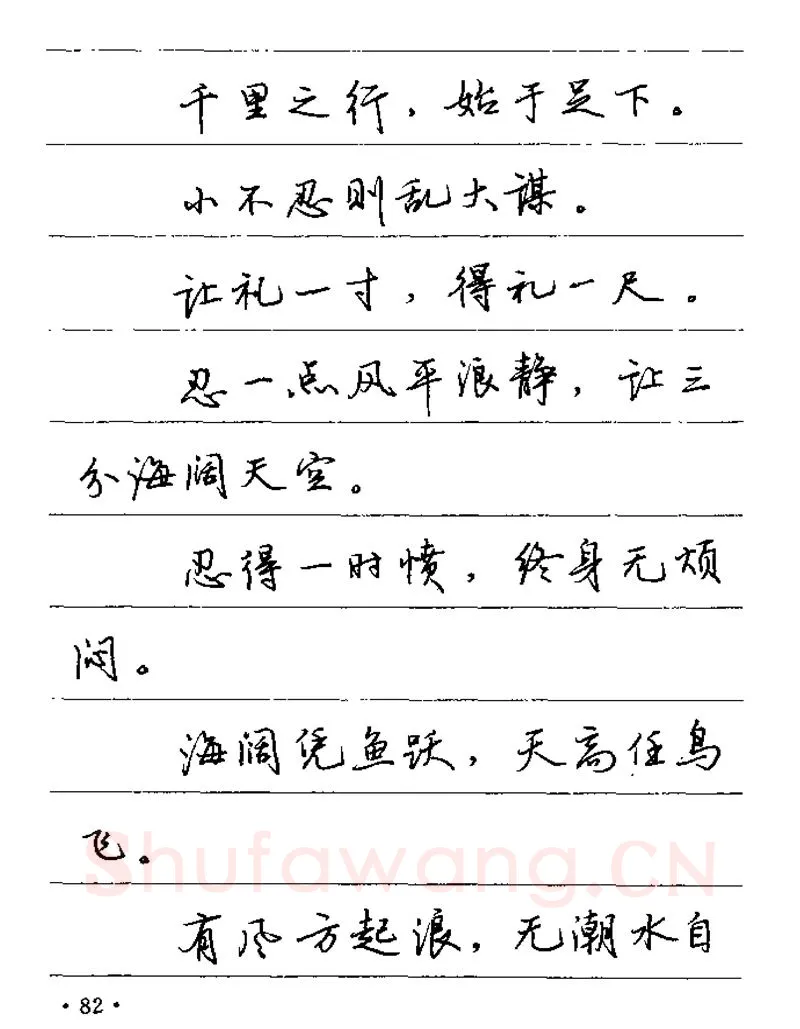 千里之行，始于足下。
小不忍则乱大谋。
让礼一寸，得礼一尺。
忍一点风平浪静，让三
分海阔天空。
忍得一时愤，终身无烦
闷。
海阔凭鱼跃，天高任鸟
飞。
Shufawang.CN
有风方起浪，无潮水自
·82·